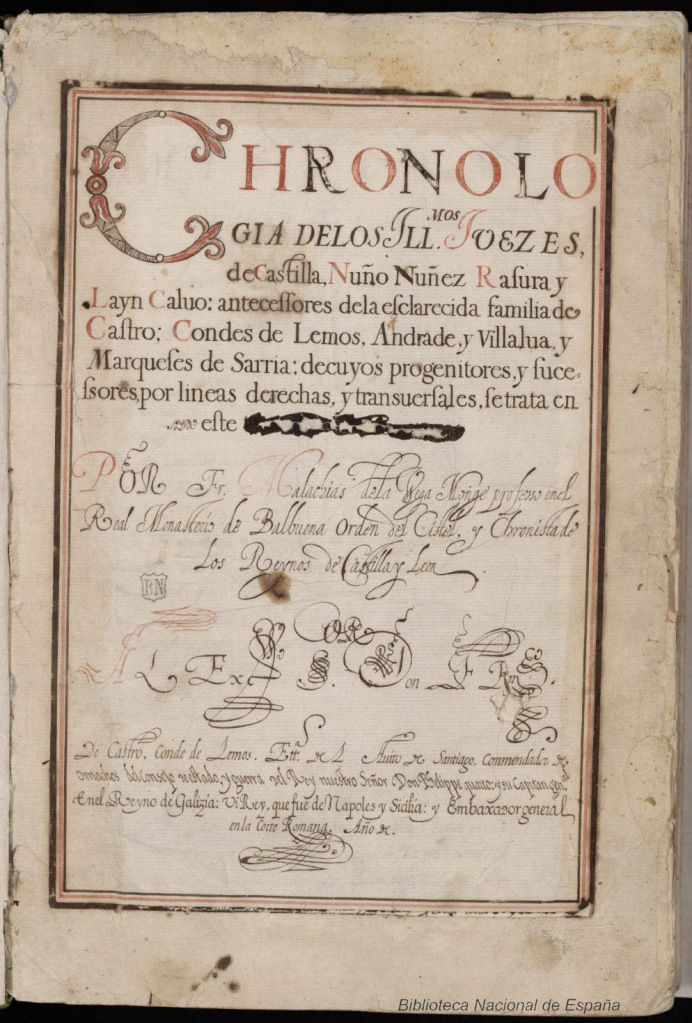 CHRONOLO
GIA DE LOS ILL.MOS IVEZES,
de Castilla, Nuño Nuñez Rasura y
Layn Caluo: antecessores dela esclarecida familia de
Castro; Condes de Lemos, Andrade, y Villalua, y
Marqueses de Sarria: de cuyos progenitores, y suce-
ssores, por lineas derechas, y transuersales, se trata en
este
POR Fr. Malachias de la Vega Monge professo en el
Real Monasterio de Balbuena Orden del Cistel, y Chronista de
los Reynos de Castilla y Leon
BN
AL Ex.mo S.or Don F
De Castro, Conde de Lemos. Ett.ª del Auito de Santiago, Commendador de
ornachos del Consejo de estado, y guerra del Rey nuestro Señor Don Philippe quarto: y su Capitan genl
en el Reyno de Galizia: ViRey, que fue de Napoles y Sicilia: y Embaxador general
en la Corte Romana. Año de.
Biblioteca Nacional de España